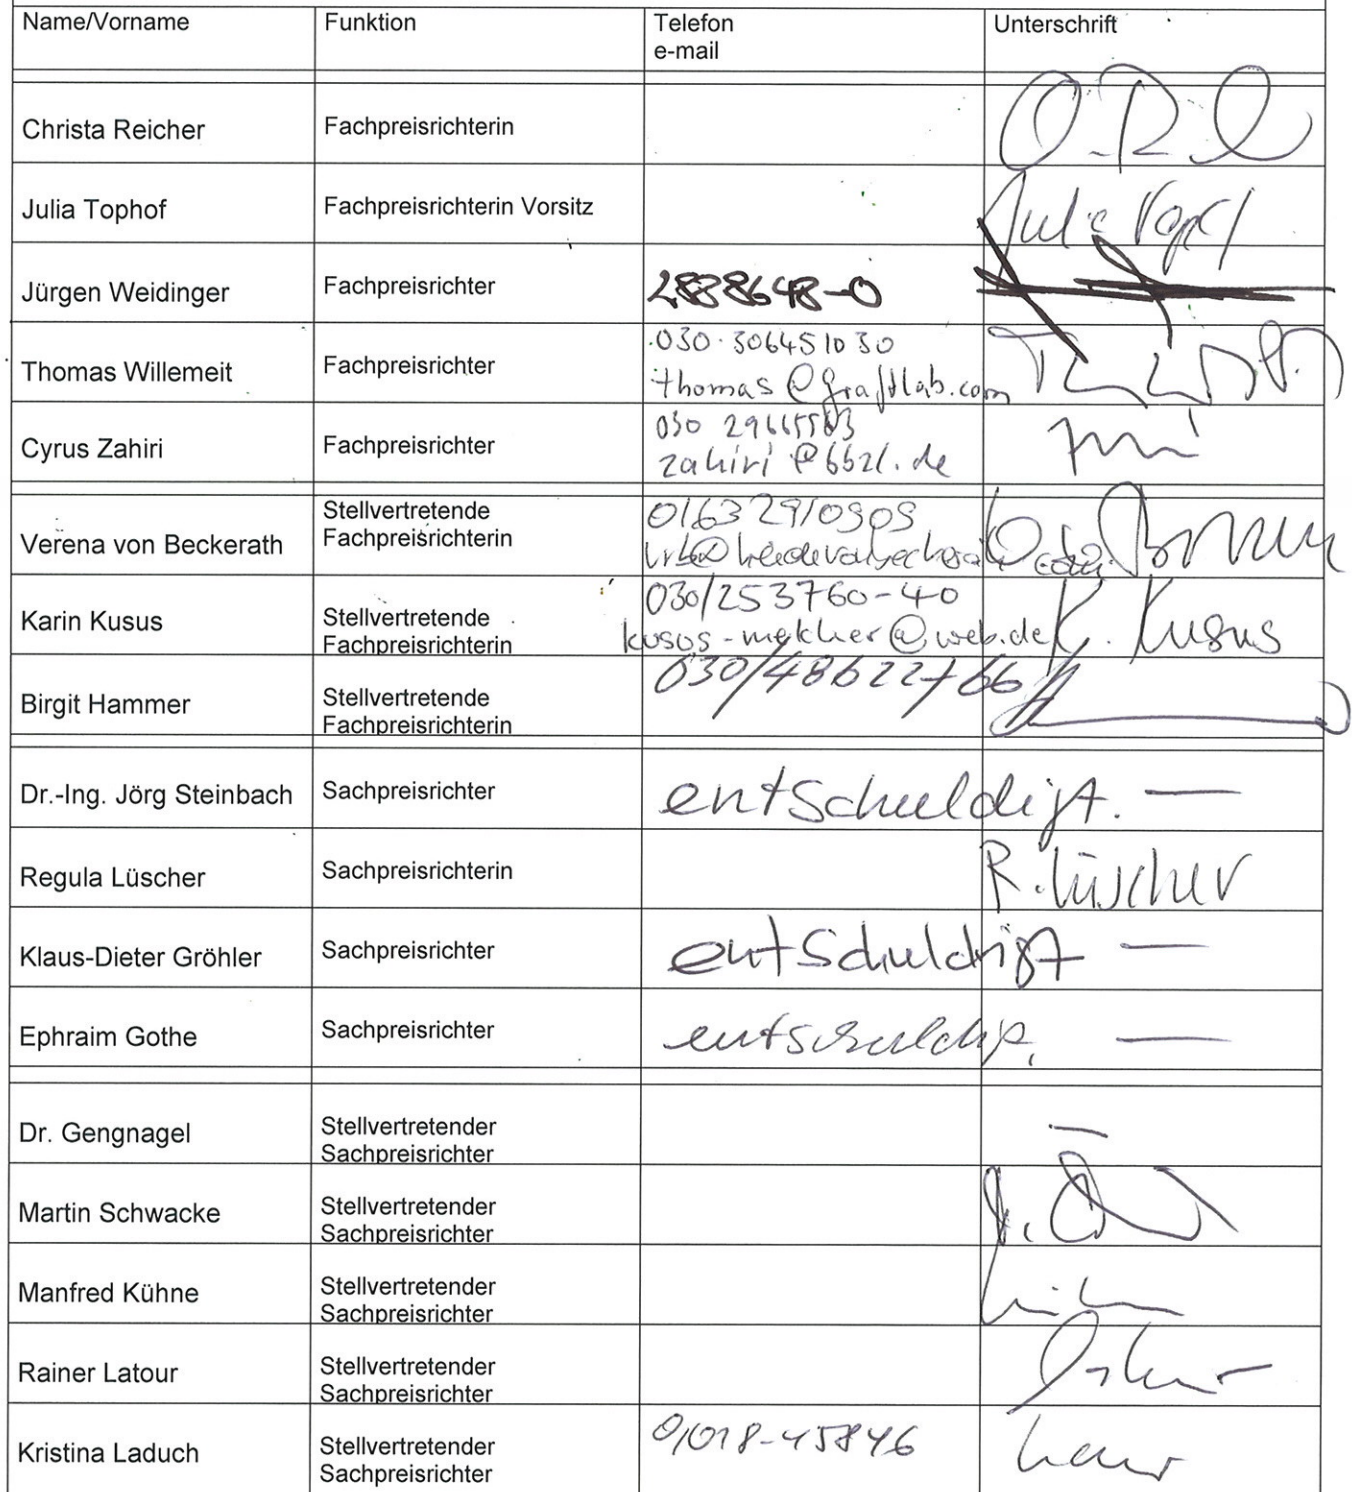 Name/Vorname Funktion Telefon Unterschrift
e-mail
Christa Reicher Fachpreisrichterin
Julia Tophof Fachpreisrichterin Vorsitz
Jürgen Weidinger Fachpreisrichter 2888648-0
030 · 306451030
Thomas Willemeit Fachpreisrichter
thomas@graftlab.com
Cyrus Zahiri Fachpreisrichter
zahiri@bbzl.de
Stellvertretende 0163 2910909
Verena von Beckerath Fachpreisrichterin
030/253760-40
Karin Kusus Stellvertretende K. Kusus
Fachpreisrichterin kusus-melcher@web.de
030/48622766
Birgit Hammer Stellvertretende
Fachpreisrichterin
Dr.-Ing. Jörg Steinbach Sachpreisrichter entschuldigt. —
Regula Lüscher Sachpreisrichterin R. Lüscher
Klaus-Dieter Gröhler Sachpreisrichter entschuldigt —
Ephraim Gothe Sachpreisrichter —
Dr. Gengnagel Stellvertretender —
Sachpreisrichter
Martin Schwacke Stellvertretender
Sachpreisrichter
Manfred Kühne Stellvertretender
Sachpreisrichter
Rainer Latour Stellvertretender
Sachpreisrichter
Kristina Laduch Stellvertretender
Sachpreisrichter